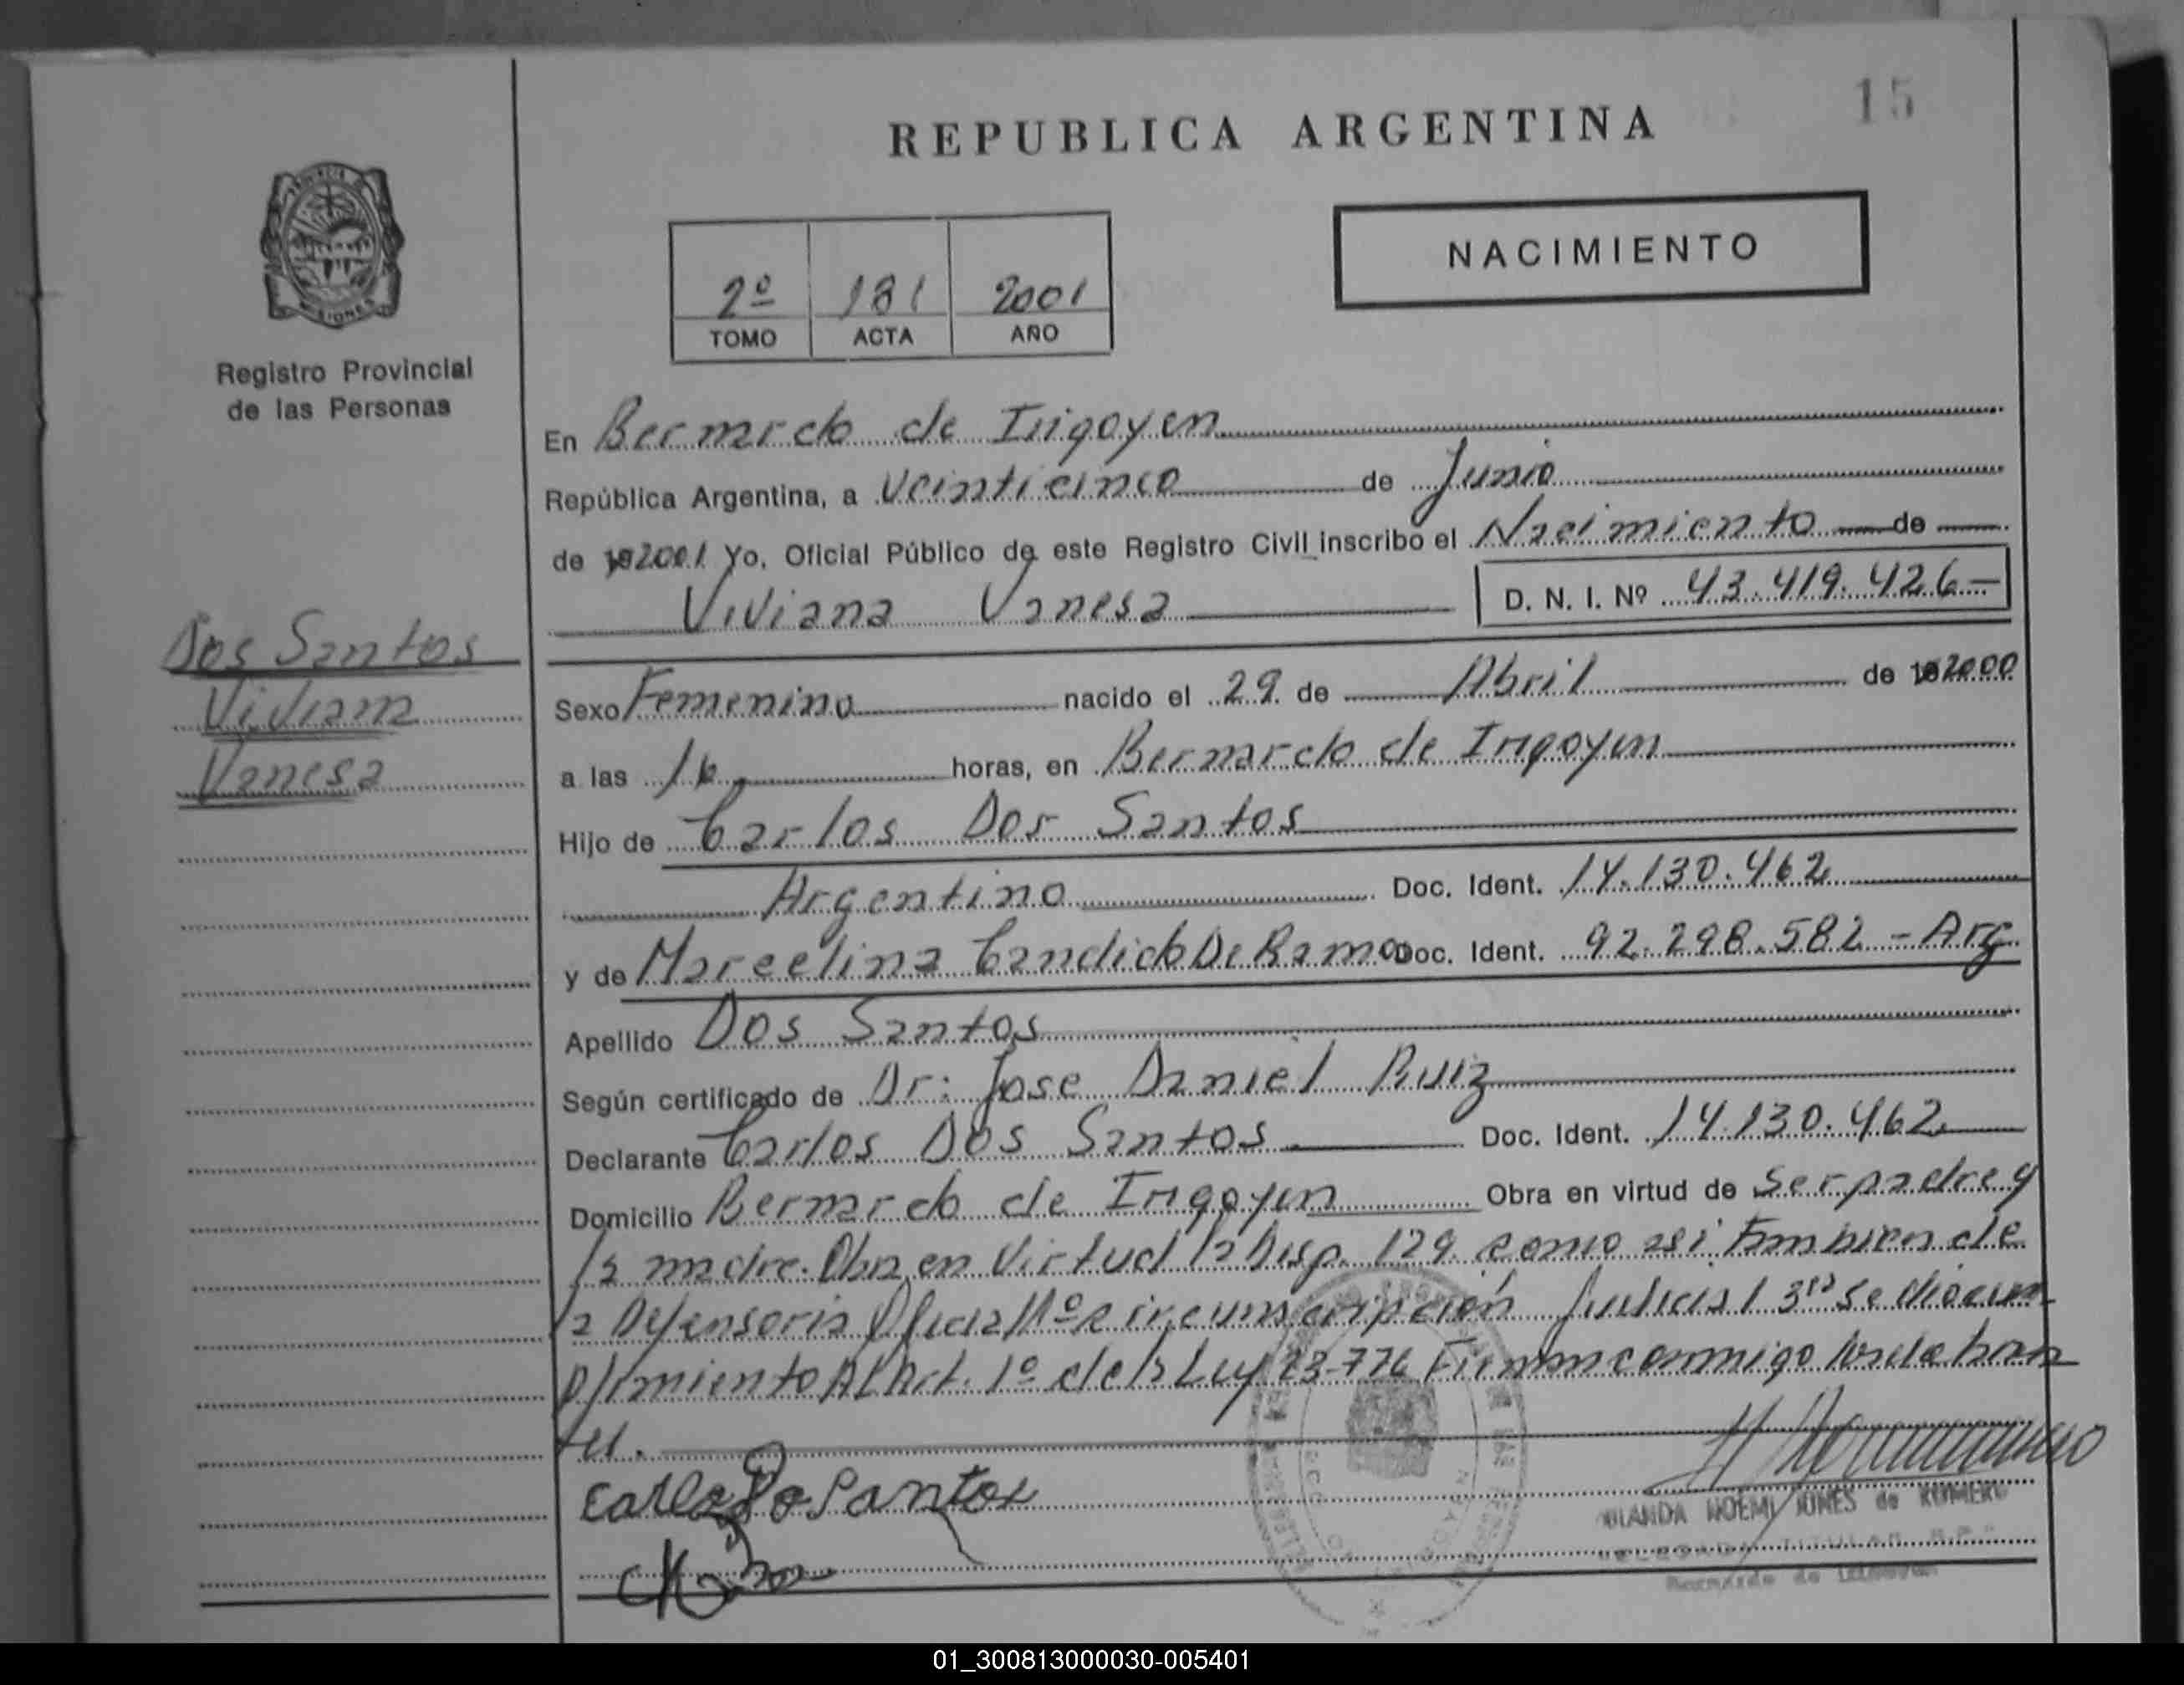 15
REPUBLICA ARGENTINA
NACIMIENTO
2º 181 2001
TOMO ACTA AÑO
MISIONES
Registro Provincial
de las Personas
En Bernardo de Irigoyen
República Argentina, a Veinticinco de Junio
de 192001 Yo, Oficial Público de este Registro Civil inscribo el Nacimiento de
Viviana Vanesa D. N. I. Nº 43.419.426-
Dos Santos
Viviana
Vanesa
Sexo Femenino nacido el 29 de Abril de 192000
a las 16 horas, en Bernardo de Irigoyen
Hijo de Carlos Dos Santos
Argentino Doc. Ident. 14.130.462
y de Marcelina Candido De Ramos Doc. Ident. 92.298.582 - Arg
Apellido Dos Santos
Según certificado de Dr: Jose Daniel Ruiz
Declarante Carlos Dos Santos Doc. Ident. 14.130.462
Domicilio Bernardo de Irigoyen Obra en virtud de Ser padre y
la madre. Obra en Virtud la Disp. 129 como asi tambien de
la Defensoria Oficial Nº circunscripción Judicial 3ra se dio cum
plimiento Al Art. 1º de la Ley 23.776 Firman conmigo los declaran
tes.
Carlos Do Santos
YOLANDA NOEMI JONES de ROMERO
DELEGADA TITULAR R.P.
Bernardo de Irigoyen
01_300813000030-005401